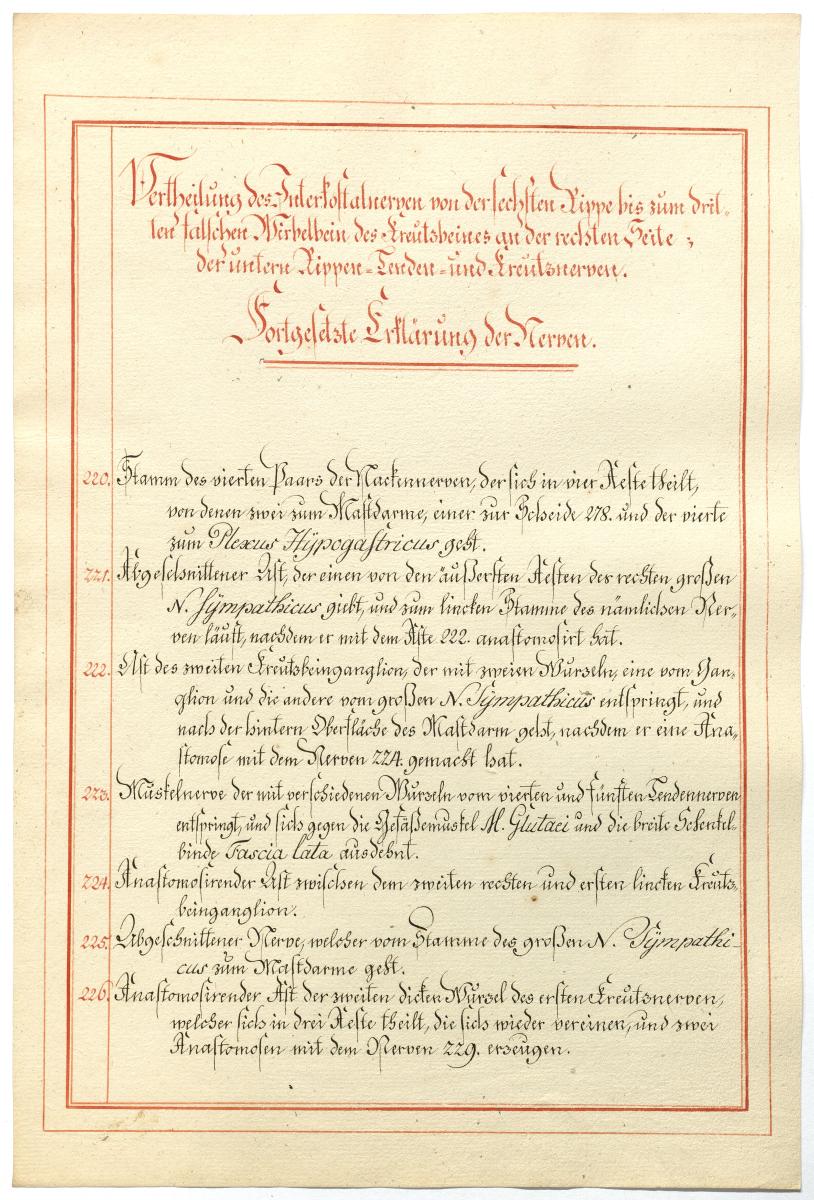 Vertheilung des Interkostalnerven von der sechsten Rippe bis zum drit-
ten falschen Wirbelbein des Kreutzbeines an der rechten Seite;
der untern Rippen-Lenden-und Kreutznerven.
Fortgesetzte Erklärung der Nerven.
220. Stamm des vierten Paars der Nackennerven, der sich in vier Aeste theilt,
von denen zwei zum Mastdarme, einer zur Scheide 278. und der vierte
zum Plexus Hÿpogastricus geht.
221. Abgeschnittener Ast, der einen von den äußersten Aesten des rechten großen
N. Sÿmpathicus giebt, und zum lincken Stamme des nämlichen Ner-
ven läuft, nachdem er mit dem Aste 222. anastomosirt hat.
222. Ast des zweiten Kreutzbeinganglion, der mit zweien Wurzeln, eine vom Gan-
glion und die andere vom großen N. Sÿmpathicus entspringt, und
nach der hintern Oberfläche des Mastdarm geht, nachdem er eine Ana-
stomose mit dem Nerven 224. gemacht hat.
223. Muskelnerve der mit verschiedenen Wurzeln vom vierten und fünften Lendennerven
entspringt, und sich gegen die Gefäßemuskel M. Glutaei und die breite Schenkel-
binde Fascia lata ausdehnt.
224. Anastomosirender Ast zwischen dem zweiten rechten und ersten lincken Kreutz-
beinganglion.
225. Abgeschnittener Nerve, welcher vom Stamme des großen N. Sÿmpathi-
cus zum Mastdarme geht.
226. Anastomosirender Ast der zweiten dicken Wurzel des ersten Kreutznerven,
welcher sich in drei Aeste theilt, die sich wieder vereinen, und zwei
Anastomosen mit dem Nerven 229. erzeugen.